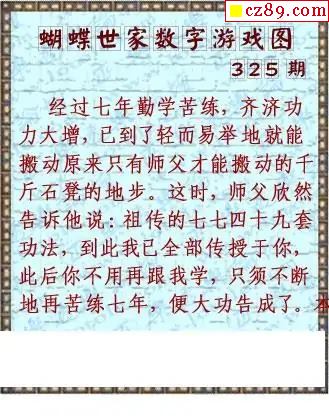 cz89.com
蝴蝶世家数字游戏图
325期
经过七年勤学苦练，齐济功
力大增，已到了轻而易举地就能
搬动原来只有师父才能搬动的千
斤石凳的地步。这时，师父欣然
告诉他说：祖传的七七四十九套
功法，到此我已全部传授于你，
此后你不用再跟我学，只须不断
地再苦练七年，便大功告成了。本